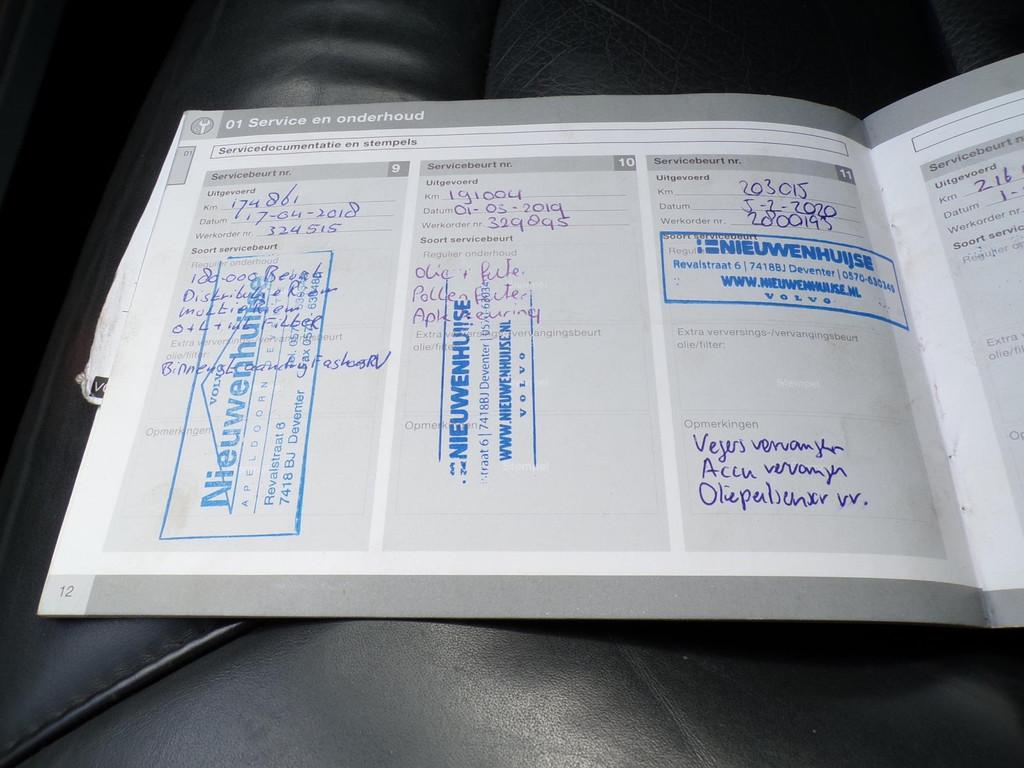 01 Service en onderhoud
01
Servicedocumentatie en stempels
Servicebeurt nr. 9
Uitgevoerd
Km 174861
Datum 17-04-2018
Werkorder nr. 324515
Soort servicebeurt
Regulier onderhoud
180.000 Beurt
Distributie Riem
multi Riem
Extra verversings-/vervangingsbeurt
olie/filter:
Opmerkingen
Nieuwenhuijse
VOLVO
APELDOORN DEVENTER
Revalstraat 6
7418 BJ Deventer
Servicebeurt nr. 10
Uitgevoerd
Km 191004
Datum 01-03-2019
Werkorder nr. 329895
Soort servicebeurt
Regulier onderhoud
Olie + filter
Pollenfilter
Apk keuring
Extra verversings-/vervangingsbeurt
olie/filter:
Opmerkingen
Stempel
NIEUWENHUIJSE
straat 6 | 7418BJ Deventer | 0570-63034
WWW.NIEUWENHUIJSE.NL
VOLVO
Servicebeurt nr. 11
Uitgevoerd
Km 203015
Datum 5-2-2020
Werkorder nr. 2800195
Soort servicebeurt
NIEUWENHUIJSE
Revalstraat 6 | 7418BJ Deventer | 0570-630349
WWW.NIEUWENHUIJSE.NL
VOLVO
Extra verversings-/vervangingsbeurt
olie/filter:
Stempel
Opmerkingen
Vegers vervangen
Accu vervangen
Oliepeilsensor vv.
12
Servicebeurt nr.
Uitgevoerd
Km 216
Datum 1-
Werkorder nr.
Soort service
Regulier on
Extra ve
olie/fil